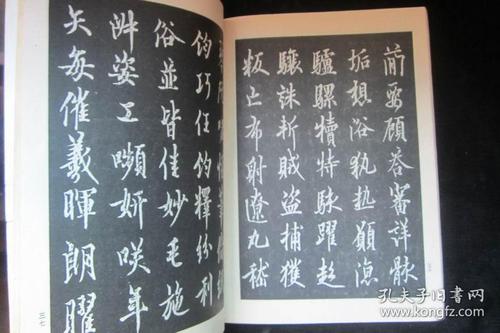 簡要顧答審詳骸
垢想浴執熱願涼
驢騾犢特駭躍超
驤誅斬賊盜捕獲
叛亡布射遼丸嵇
鈞巧任釣釋紛利
俗並皆佳妙毛施
淑姿工嚬妍咲年
矢每催羲暉朗曜
三七
孔夫子旧书网
www.kongfz.com